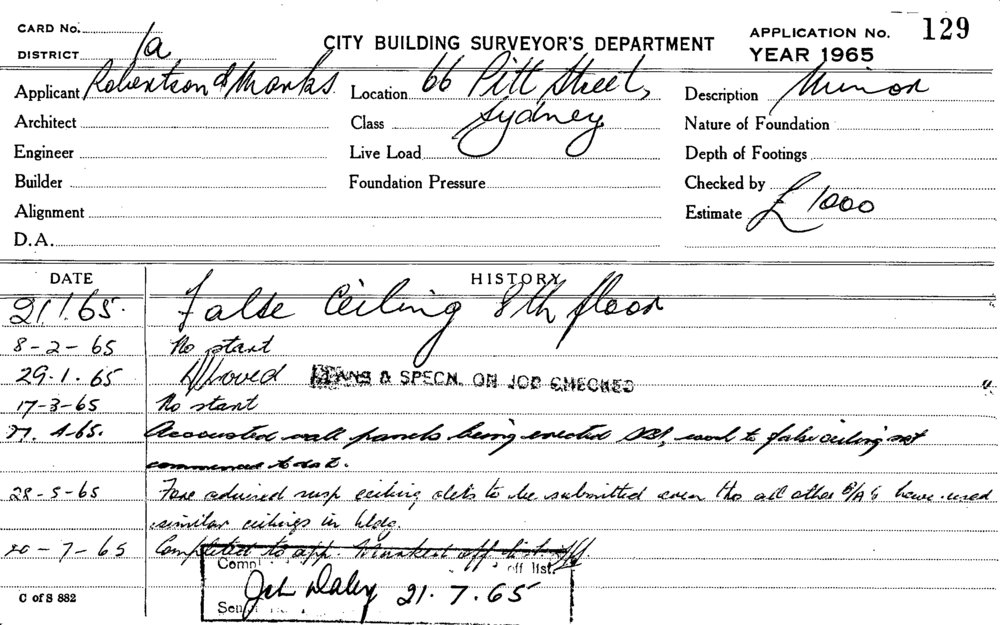 CARD No.
DISTRICT 1a
CITY BUILDING SURVEYOR'S DEPARTMENT
APPLICATION No. 129
YEAR 1965
Applicant Robertson & Marks.
Location 66 Pitt Street,
Sydney
Description Minor
Architect
Class
Nature of Foundation
Engineer
Live Load
Depth of Footings
Builder
Foundation Pressure
Checked by
Alignment
Estimate £ 1000
D.A.
DATE HISTORY
21.1.65. False Ceiling 8th floor
8-2-65 No start
29.1.65 Approved PLANS & SPECN. ON JOB CHECKED
17-3-65 No start
4-65. wall panels being erected work to false ceiling not
commenced to date.
28-5-65 advised susp ceiling dets to be submitted even tho all other have used
similar ceilings in bldg.
20-7-65 Completed to app. Marked off list
off list.
John Daley 21.7.65
C of S 882